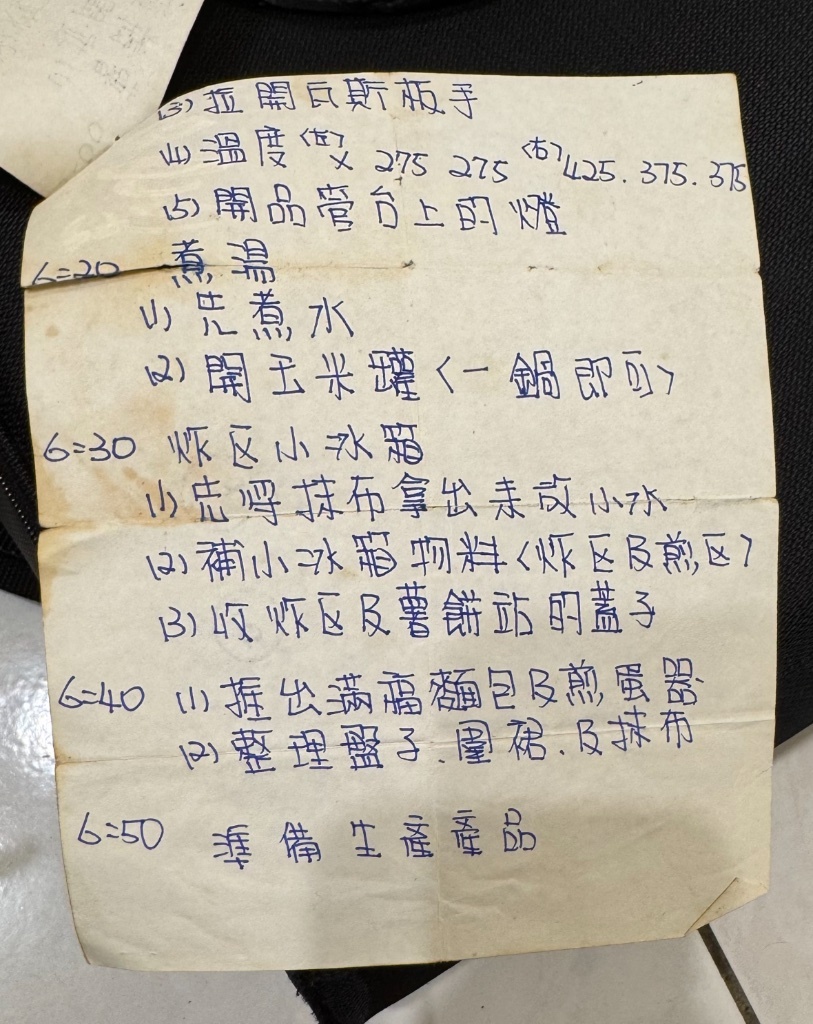 (3) 拉開瓦斯板手
(4) 溫度<左> X 275 275 <右> 425.375.375
(5) 開品管台上的燈
6:20 煮湯
(1) 先煮水
(2) 開玉米罐<一鍋即可>
6:30 炸区小冰箱
(1) 先將抹布拿出來放小水
(2) 補小冰箱物料<炸区及煎区>
(3) 收炸区及薯餅站的蓋子
6:40 (1) 推出滿福麵包及煎蛋器
(2) 整理盤子.圍裙.及抹布
6:50 準備生產產品